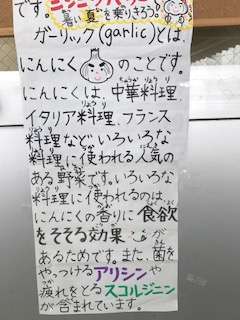 です。
暑い夏を乗りきろう。
ガーリック(garlic)とは、
にんにくのことです。
にんにくは、中華料理、
イタリア料理、フランス
料理などいろいろな
料理に使われる人気の
ある野菜です。いろいろな
料理に使われるのは、
にんにくの香りに食欲
をそそる効果が
あるためです。また、菌を
やっつけるアリシンや
疲れをとるスコルジニン
が含まれています。